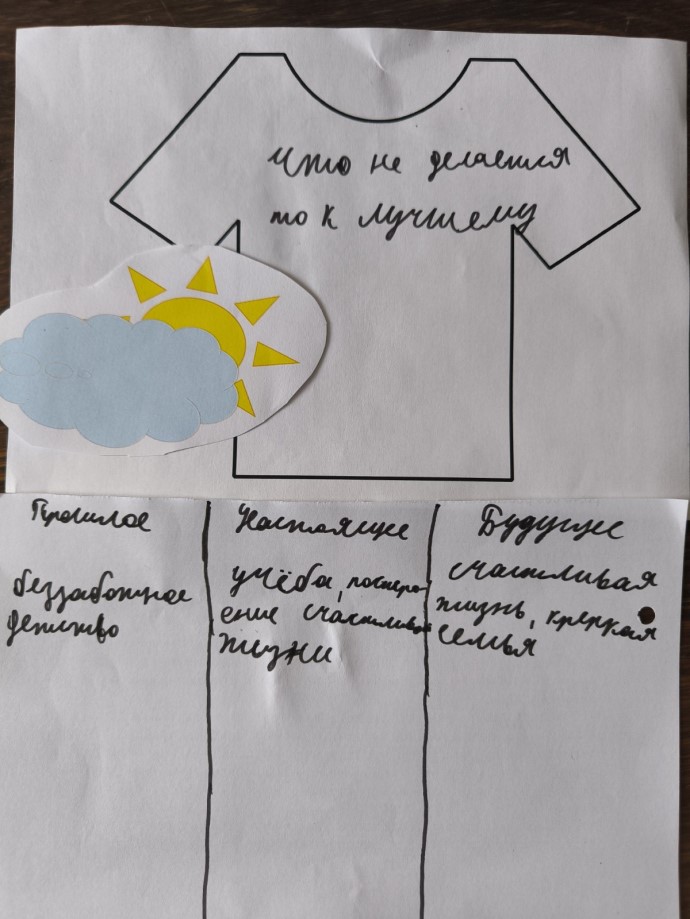 Что не делается
то к лучшему
Прошлое
беззаботное
детство
Настоящее
учёба, постро
ение счастливой
жизни
Будущее
счастливая
жизнь, крепкая
семья